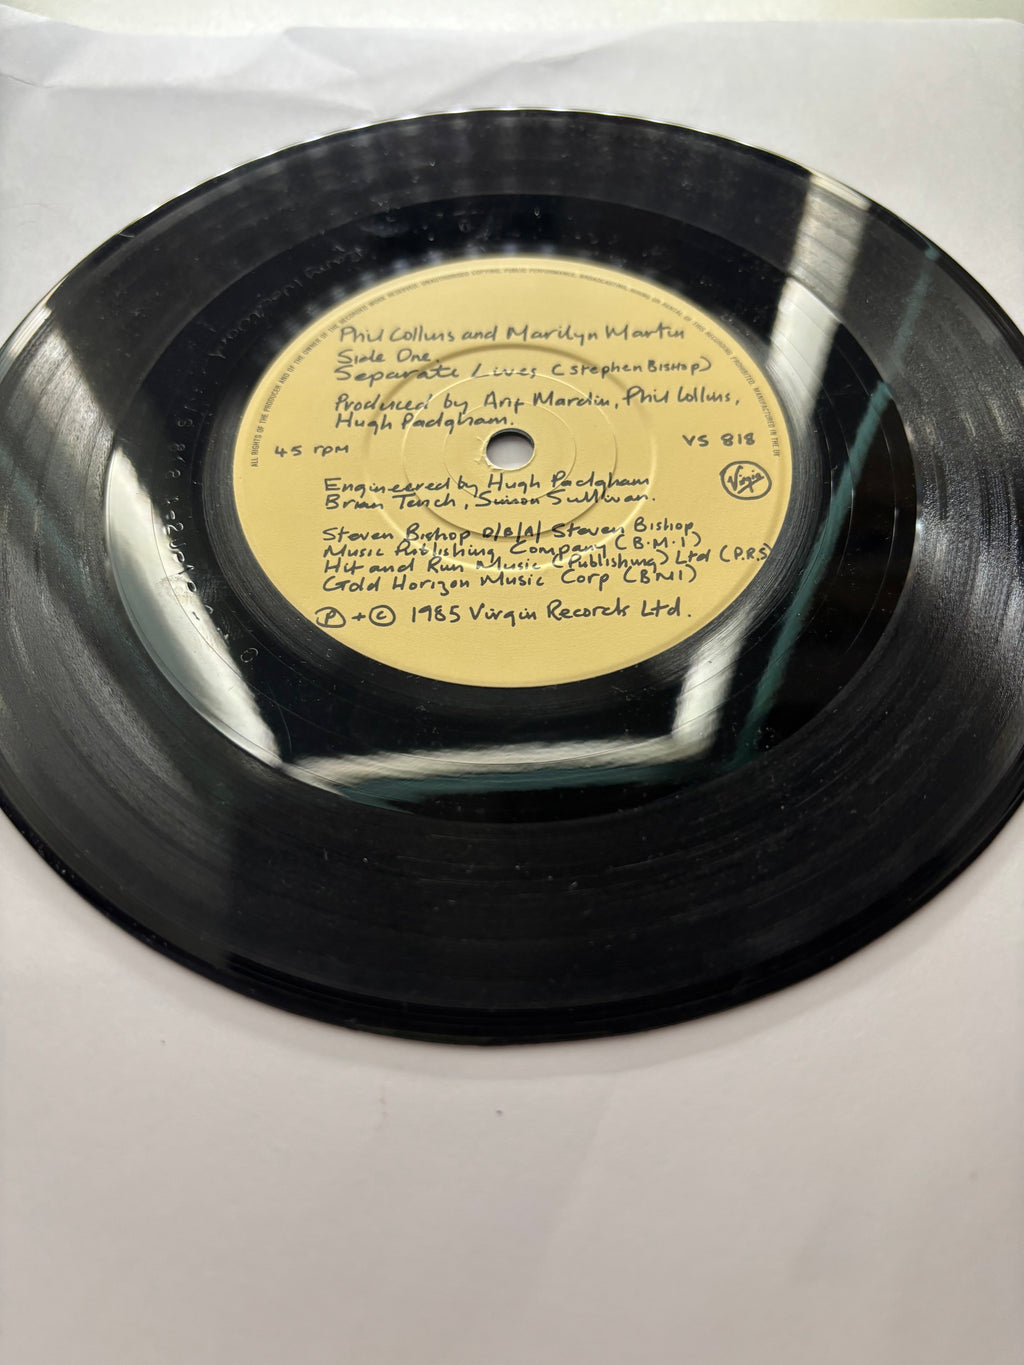 ALL RIGHTS OF THE PRODUCER AND OF THE OWNER OF THE RECORDED WORK RESERVED. UNAUTHORISED COPYING, PUBLIC PERFORMANCE, BROADCASTING, HIRING OR RENTAL OF THIS RECORDING PROHIBITED. MANUFACTURED IN THE UK
Phil Collins and Marilyn Martin
Side One.
Separate Lives (Stephen Bishop)
Produced by Arif Mardin, Phil Collins,
Hugh Padgham.
45 rpm
VS 818
Virgin
Engineered by Hugh Padgham
Brian Tench, Simon Sullivan.
Steven Bishop D/B/A/ Steven Bishop
Music Publishing Company (B.M.I)
Hit and Run Music (Publishing) Ltd (P.R.S)
Gold Horizon Music Corp (BMI)
Ⓟ + © 1985 Virgin Records Ltd.